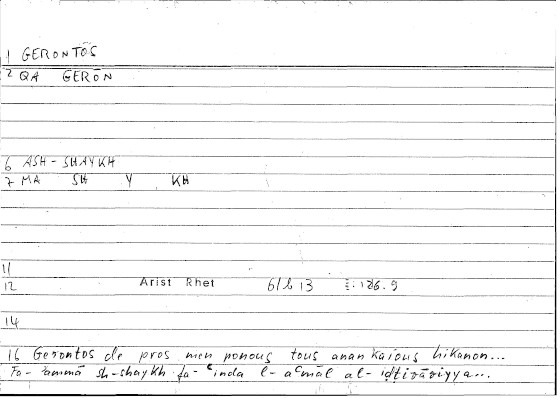 1 GERONTŌS
2 QA GERŌN
6 ASH-SHAYKH
7 MA SH Y KH
11
12 Arist Rhet 61b13 : 126.9
14
16 Gerontos de pros men ponous tous anankaious hikanon...
Fa-ʾammā sh-shaykh fa-ʿinda l-aʿmāl al-iḍṭirāriyya...